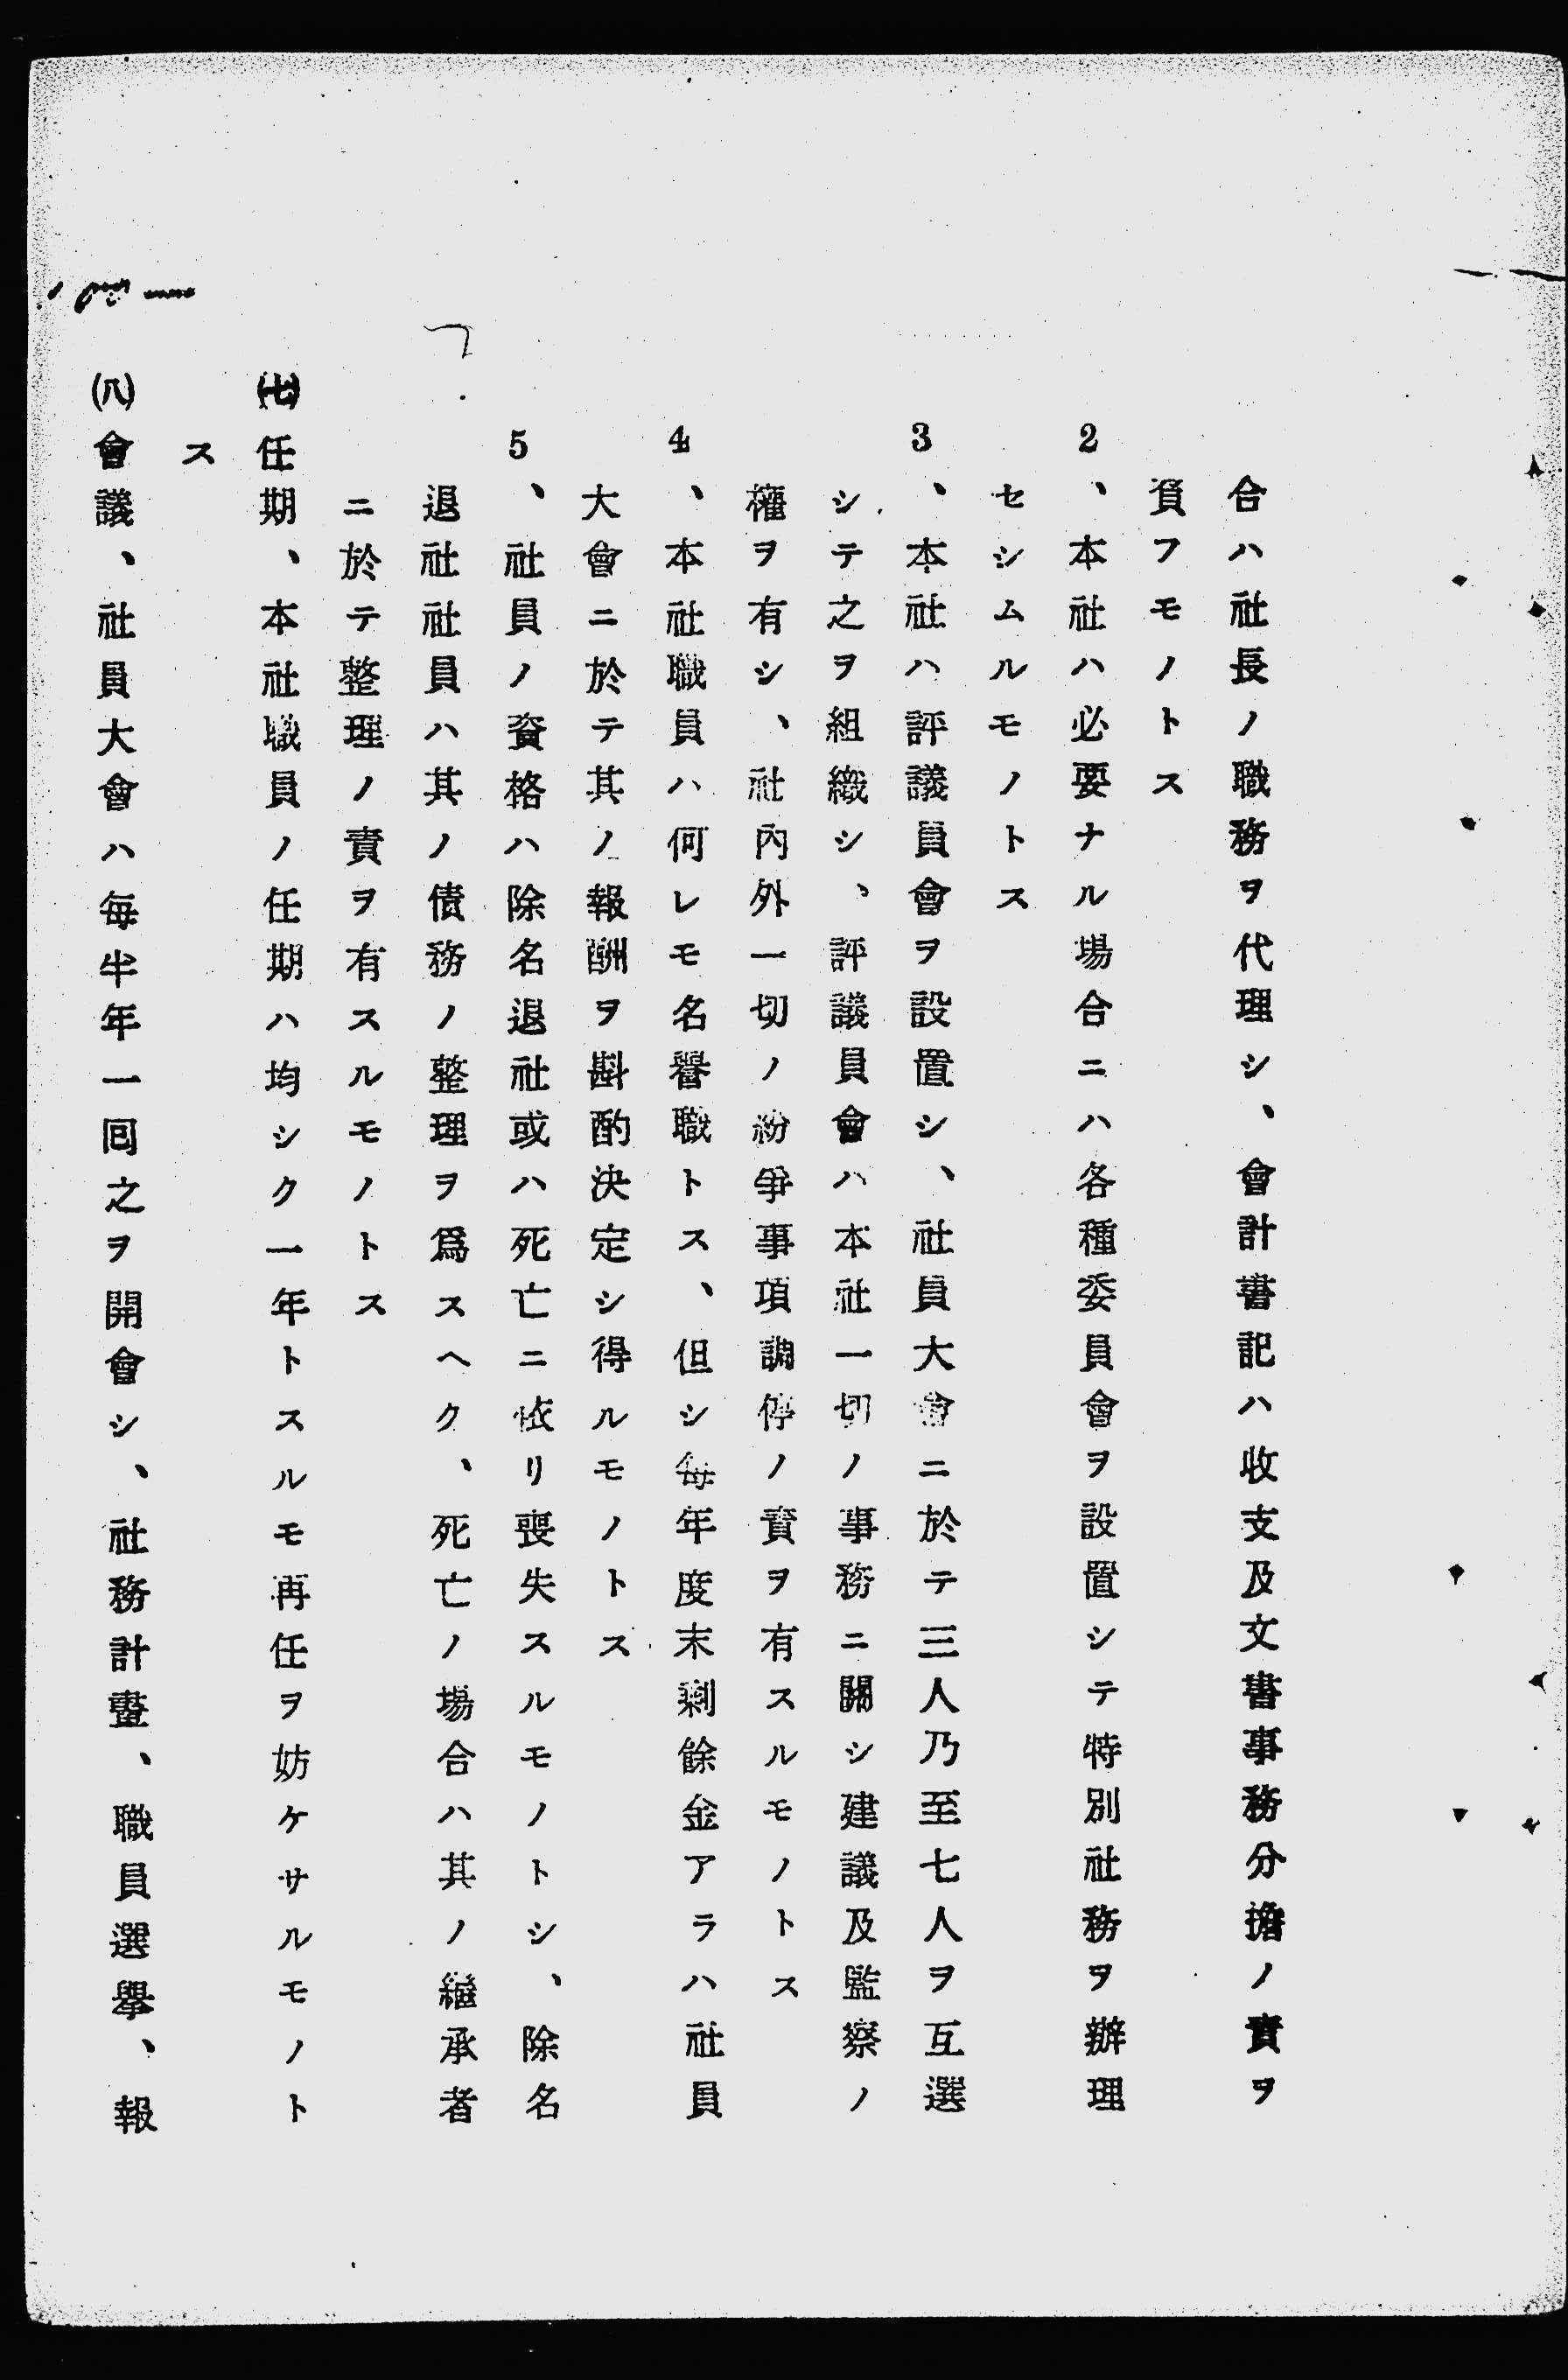 合ハ社長ノ職務ヲ代理シ、會計書記ハ收支及文書事務分擔ノ責ヲ
負フモノトス
2、本社ハ必要ナル場合ニハ各種委員會ヲ設置シテ特別社務ヲ辦理
セシムルモノトス
3、本社ハ評議員會ヲ設置シ、社員大會ニ於テ三人乃至七人ヲ互選
シテ之ヲ組織シ、評議員會ハ本社一切ノ事務ニ關シ建議及監察ノ
權ヲ有シ、社內外一切ノ紛爭事項調停ノ責ヲ有スルモノトス
4、本社職員ハ何レモ名譽職トス、但シ每年度末剩餘金アラハ社員
大會ニ於テ其ノ報酬ヲ斟酌決定シ得ルモノトス
5、社員ノ資格ハ除名退社或ハ死亡ニ依リ喪失スルモノトシ、除名
退社社員ハ其ノ債務ノ整理ヲ爲スヘク、死亡ノ場合ハ其ノ繼承者
ニ於テ整理ノ責ヲ有スルモノトス
(七)任期、本社職員ノ任期ハ均シク一年トスルモ再任ヲ妨ケサルモノト
ス
(八)會議、社員大會ハ每半年一回之ヲ開會シ、社務計畫、職員選擧、報